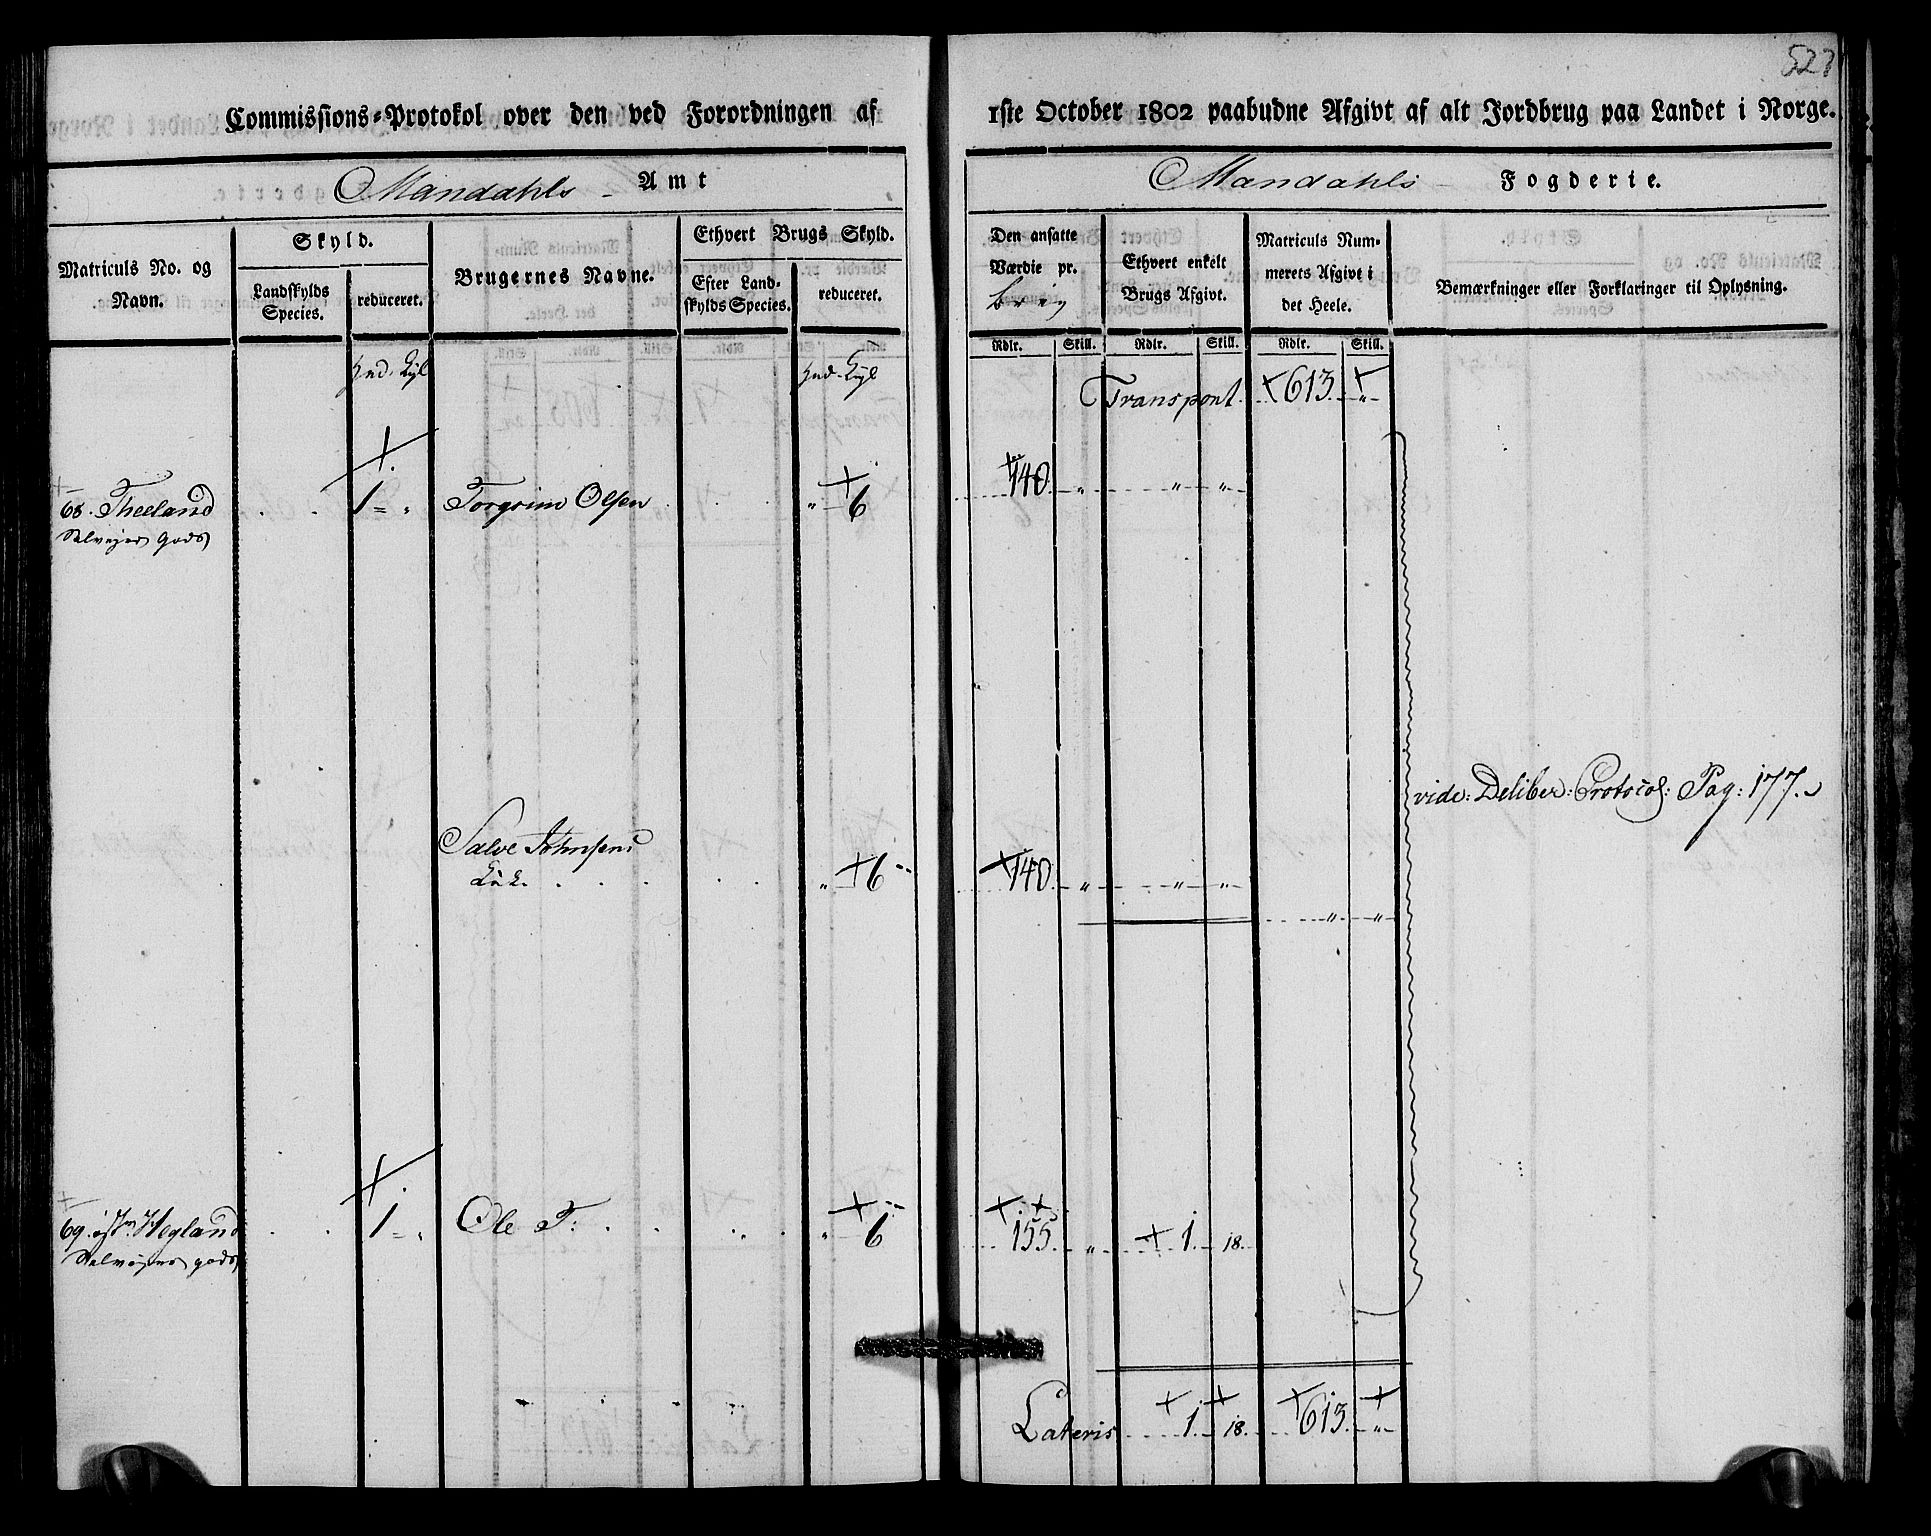 527
Commissions-Protokol over den ved Forordningen af 1ste October 1802 paabudne Afgivt af alt Jordbrug paa Landet i Norge.
Mandahls Amt
Mandahls Fogderie.
Matriculs No. og Navn.
Skyld.
Landskylds Species.
reduceret.
Brugernes Navne.
Ethvert Brugs Skyld.
Efter Landskylds Species.
reduceret.
Den ansatte Værdie pr.
Ethvert enkelt Brugs Afgivt.
Matriculs Nummerets Afgivt i det Heele.
Bemærkninger eller Forklaringer til Oplysning.
Rdlr. Skill. Rdlr. Skill. Rdlr. Skill.
Transport 613 "
68. Theeland 1 = " Torgrim Olsen " 6 140 " " "
Selvejer gods
vide: Deliber: Protocol: Pag: 177.
Salve Johnsens
" 6 140 " " "
" "
69. Hegland 1 = " Ole T: " 6 155 " 1 18
Selvejer gods
Lateris 1 18 613 "